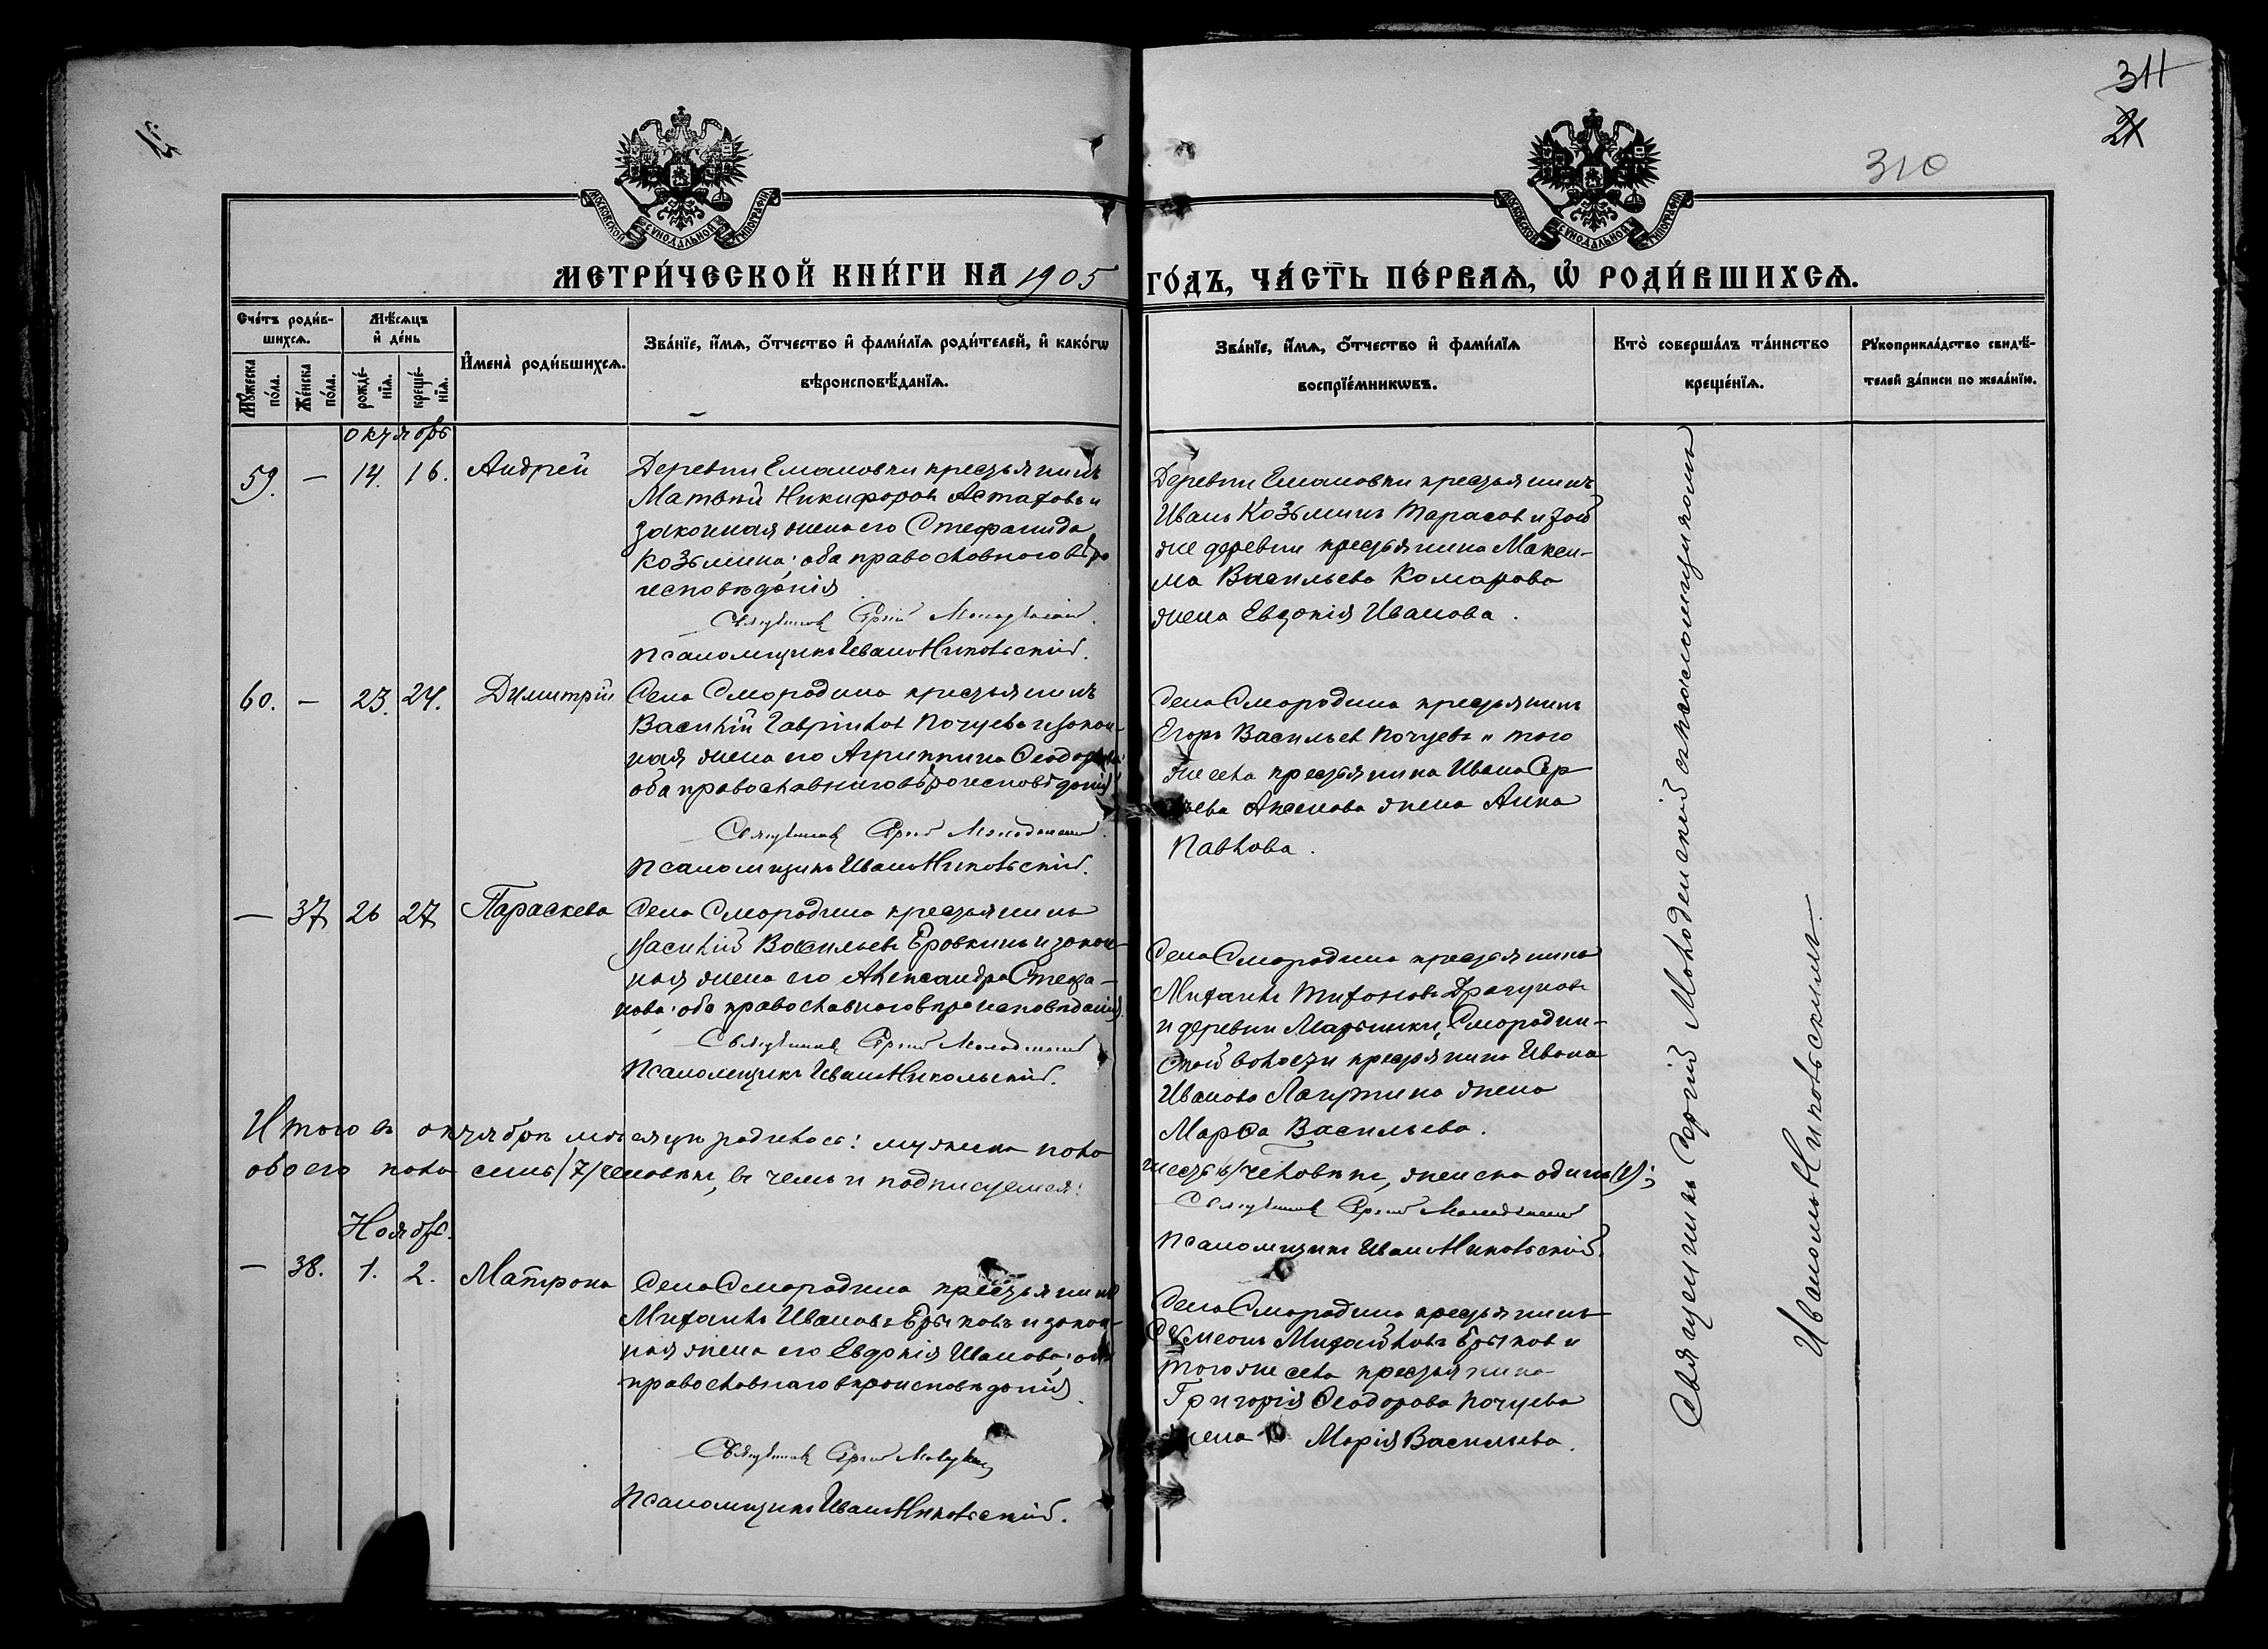 311
21
310
МЕТРИ́ЧЕСКОЙ КНИ́ГИ НА 1905 ГО́ДЪ, ЧА́СТЬ ПЕ́РВАѦ, Ѡ РОДИ́ВШИХСѦ.
МОСКОВСКОЙ СѴНОДАЛЬНОЙ ТИПОГРАФІИ
МОСКОВСКОЙ СѴНОДАЛЬНОЙ ТИПОГРАФІИ
Сче́тъ роди́в-
шихсѧ.
Мꙋ́жеска по́ла.
Же́нска по́ла.
Мѣ́сѧцъ и҆ де́нь
рожде́-
нїѧ.
креще́-
нїѧ.
И҆мена̀ роди́вшихсѧ.
Зва́нїе, и҆́мѧ, ѻ҆́тчество и҆ фами́лїѧ роди́телей, и҆ како́гѡ
вѣроисповѣ́данїѧ.
Зва́нїе, и҆́мѧ, ѻ҆́тчество и҆ фами́лїѧ
воспрїе́мникѡвъ.
Кто̀ соверша́лъ та́инство
креще́нїѧ.
Рꙋкоприкла́дство свидѣ́-
телей за́писи по жела́нїю.
октябрь
59. — 14. 16. Андрей
Деревни Емановки крестьянинъ
Матвѣй Никифоровъ Астаховъ и
законная жена его Стефанида
Козьмина; оба православнаго вѣро
исповѣданія
Священникъ Сергій Молоденскій.
Псаломщикъ Иванъ Никольскій.
Деревни Емановки крестьянинъ
Иванъ Козьминъ Тарасовъ и той
же деревни крестьянина Макси-
ма Васильева Комарова
жена Евдокія Иванова.
60. — 23. 24. Димитрій
Села Смородина крестьянинъ
Василій Гавріиловъ Почуевъ и закон-
ная жена его Агриппина Ѳеодорова
оба православнаго вѣроисповѣданія
Священникъ Сергій Молоденскій.
Псаломщикъ Иванъ Никольскій.
Села Смородина крестьянинъ
Егоръ Васильевъ Почуевъ и того
же села крестьянина Ивана Сер
Аксенова жена Анна
Павлова.
— 37 26 27 Параскева
Села Смородина крестьянинъ
Василій Васильевъ Еровкинъ и закон-
ная жена его Александра Стефа-
нова; оба православнаго вѣроисповѣданія.
Священникъ Сергій Молоденскій
Псаломщикъ Иванъ Никольскій.
Села Смородина крестьянинъ
Михаилъ Тихоновъ Драгуновъ
и деревни Марьинки, Смородин-
ской волости крестьянина Ивана
Иванова Лагутина жена
Марѳа Васильева.
Итого въ октябрѣ мѣсяцѣ родилось: мужеска пола шесть (6) человѣкъ, женска одинъ (1);
обоего пола семь (7) человѣкъ, въ чемъ и подписуемся:
Священникъ Сергій Молоденскій
Псаломщикъ Иванъ Никольскій.
Ноябрь.
— 38. 1. 2. Матрона
Села Смородина крестьянинъ
Михаилъ Ивановъ Ерыковъ и закон-
ная жена его Евдокія Иванова; оба
православнаго вѣроисповѣданія.
Священникъ Сергій
Псаломщикъ Иванъ Никольскій.
Села Смородина крестьянинъ
Сѵмеонъ Михайловъ Ерыковъ и
того же села крестьянина
Григорія Ѳеодорова Почуева
жена Марія Васильева.
Священникъ Сергій Молоденскій съ псаломщикомъ
Иваномъ Никольскимъ.